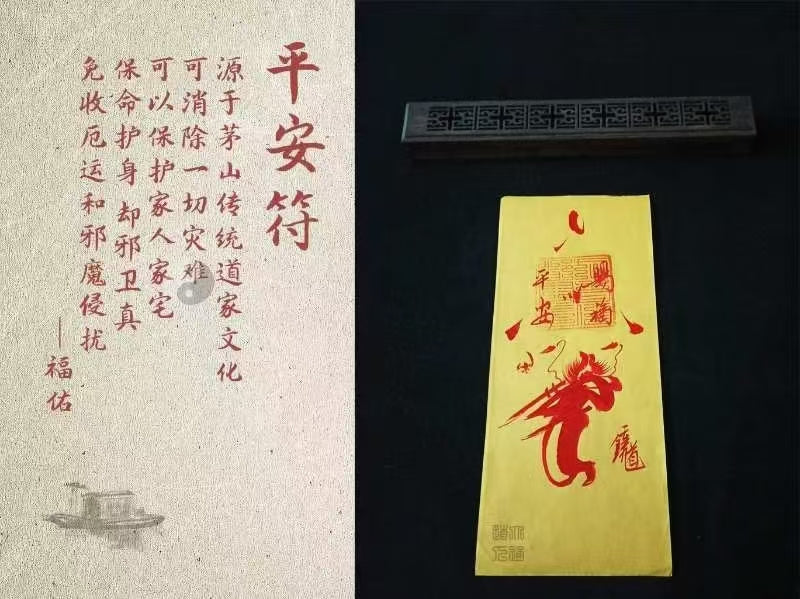 平安符
源于茅山传统道家文化
可消除一切灾难
可以保护家人家宅
保命护身却邪卫真
免收厄运和邪魔侵扰
——福佑
赐福
平安